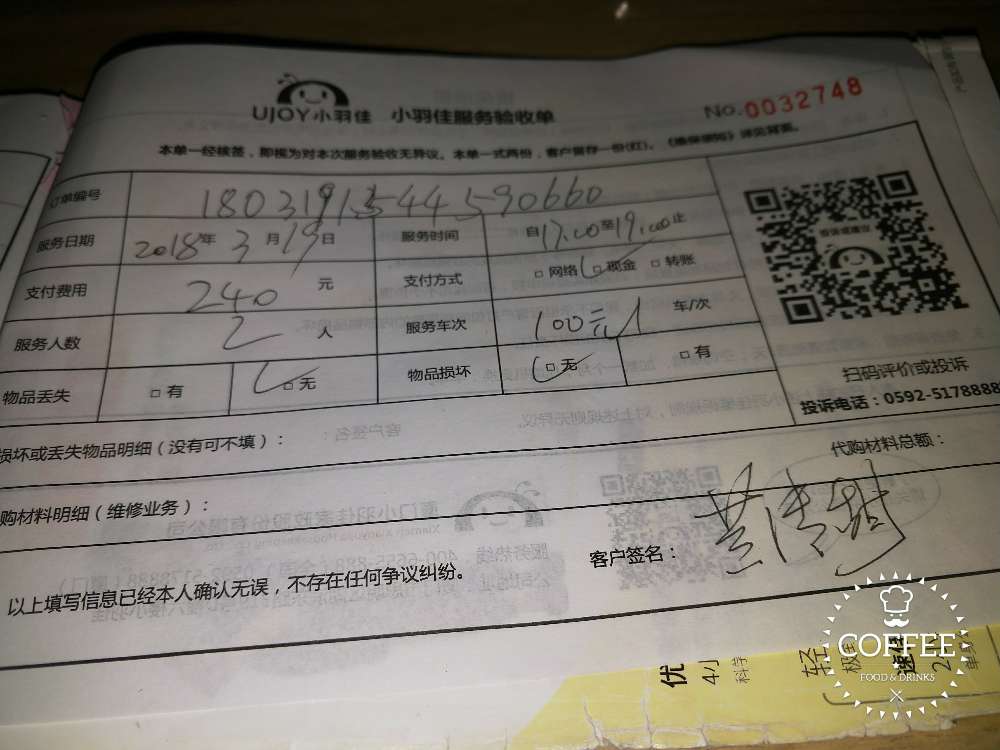 UJOY小羽佳 小羽佳服务验收单 No.0032748
本单一经核签，即视为对本次服务验收无异议。本单一式两份，客户留存一份(红)。《维保须知》详见背面。
订单编号 180319154 4590660
服务日期 2018年3月19日 服务时间 自17:00至19:00止
支付费用 240元 支付方式 □网络 ☑现金 □转账
服务人数 2人 服务车次 100元1 车/次
物品丢失 □有 ☑无 物品损坏 ☑无 □有
扫码评价或投诉
投诉电话：0592-5178888
损坏或丢失物品明细（没有可不填）：
代购材料总额：
购材料明细（维修业务）：
客户签名：
以上填写信息已经本人确认无误，不存在任何争议纠纷。
COFFEE
FOOD & DRINKS
优
轻
速